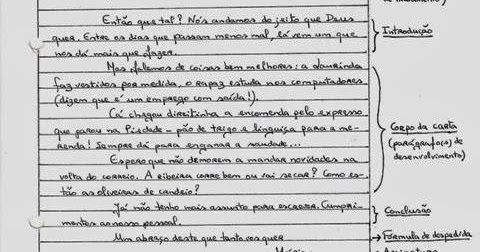 de tratamento)
Então que tal? Nós andamos do jeito que Deus
quer. Entre os dias que passam menos mal, lá vem um que
nos dá mais que fazer.
Introdução
Mas falemos de coisas bem melhores: a Lourinda
faz vestidos por medida, o rapaz estuda nos computadores
(dizem que é um emprego com saída!).
Cá chegou direitinha a encomenda pelo expresso
que parou na Piedade - pão de trigo e linguiça para a me-
renda! Sempre dá para enganar a saudade...
Espero que não demorem a mandar novidades na
volta do correio. A ribeira corre bem ou vai secar? Como es-
tão as oliveiras de candeio?
Corpo da carta
(parágrafo(s) de
desenvolvimento)
Já não tenho mais assunto para escrever. Cumpri-
mentos ao nosso pessoal.
Conclusão
Um abraço deste que tanto vos quer
Fórmula de despedida
Assinatura